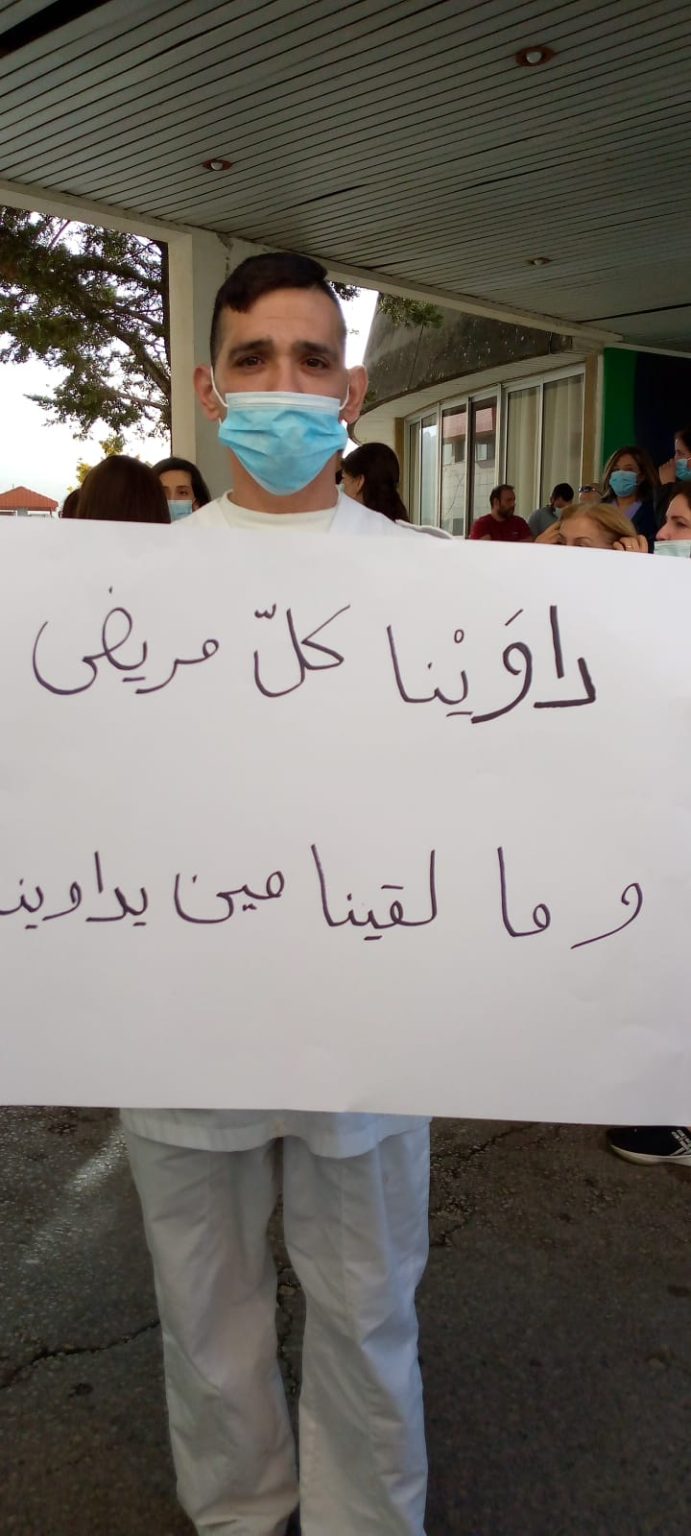 داوَيْنا كلّ مريض
و ما لقينا مين يداوينا